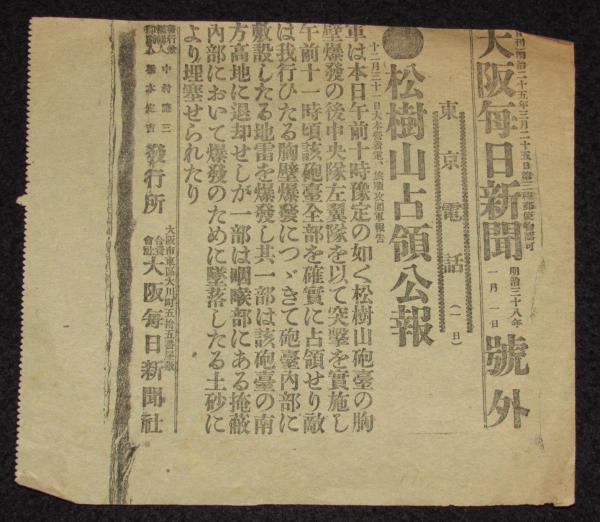 日刊(明治二十五年三月二十五日第三種郵便物認可)
大阪毎日新聞 明治三十八年一月一日 號外
東京電話(一日)
●松樹山占領公報
十二月三十一日大本營着電、旅順攻圍軍報告
軍は本日午前十時豫定の如く松樹山砲臺の胸
壁爆發の後中央隊左翼隊を以て突擊を實施し
午前十一時頃該砲臺全部を確實に占領せり敵
は我行ひたる胸壁爆發につゞきて砲臺內部に
敷設したる地雷を爆發し其一部は該砲臺の南
方高地に退却せしが一部は咽喉部にある掩蔽
內部において爆發のために墜落したる土砂に
より埋塞せられたり
發行兼編輯人 中村 三
印刷人 本 吉
發行所 大阪市東區大川町五拾五番屋敷
合資會社 大阪每日新聞社